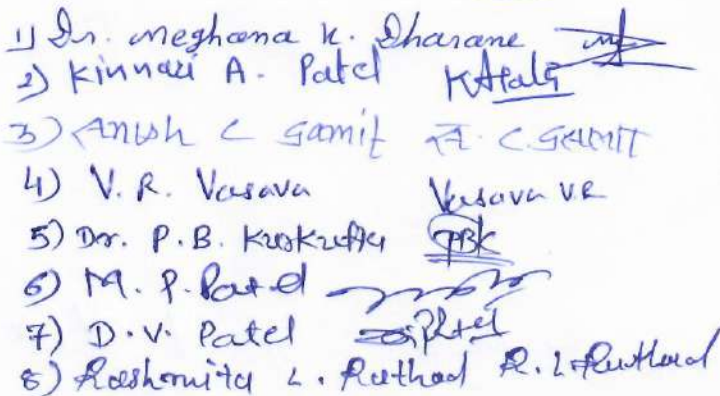 1) Dr. Meghana K. Dharane
2) Kinnari A. Patel KAPatel
3) Anish C Gamit A. C. GAMIT
4) V. R. Vasava Vasava V R
5) Dr. P. B. PBK
6) M. P. Patel
7) D. V. Patel
8) Rashmita L. Rathod R. L Rathod